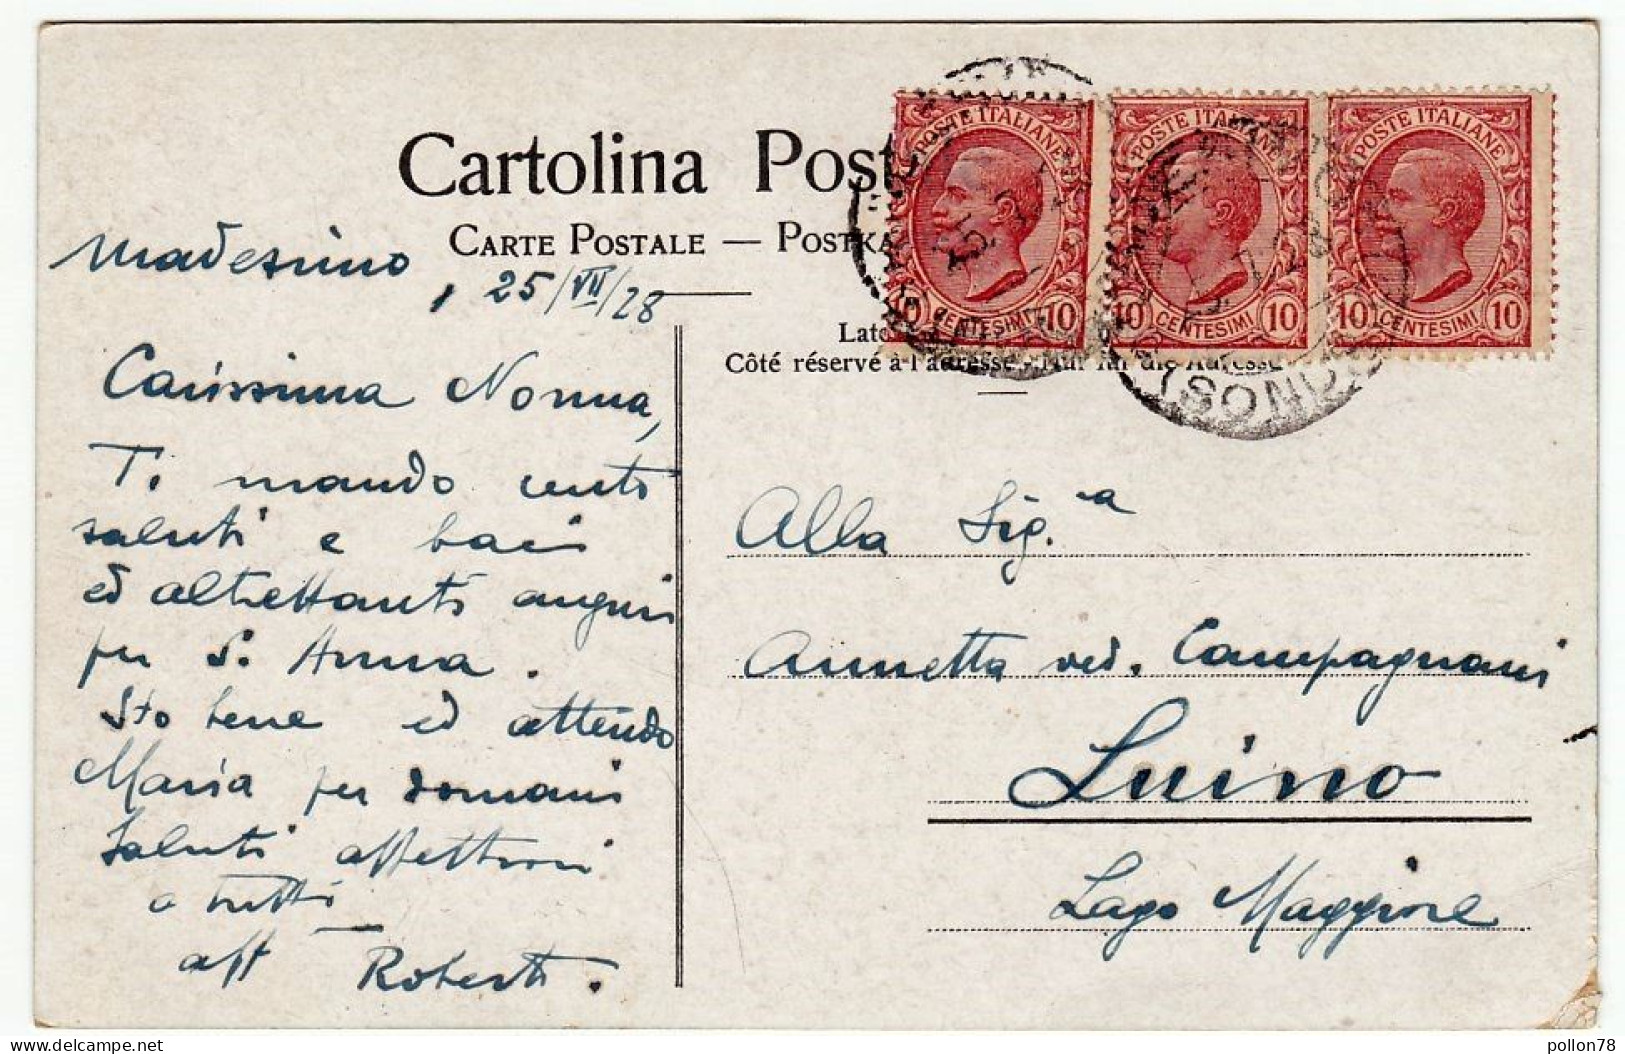 Cartolina Post
CARTE POSTALE — POSTKA
Madesimo, 25/VII/28
Late
Côté réservé à l'adresse - Nur für die Adresse
POSTE ITALIANE
10 CENTESIMI 10
POSTE ITALIANE
10 CENTESIMI 10
POSTE ITALIANE
10 CENTESIMI 10
Carissima Nonna,
Ti mando cento
saluti e baci
ed altrettanti auguri
per S. Anna.
Sto bene ed attendo
Maria per domani
Saluti affettuosi
a tutti
aff Roberto.
Alla Sig.ra
Annetta ved. Campagnani
Luino
Lago Maggiore
delcampe.net
pollon78